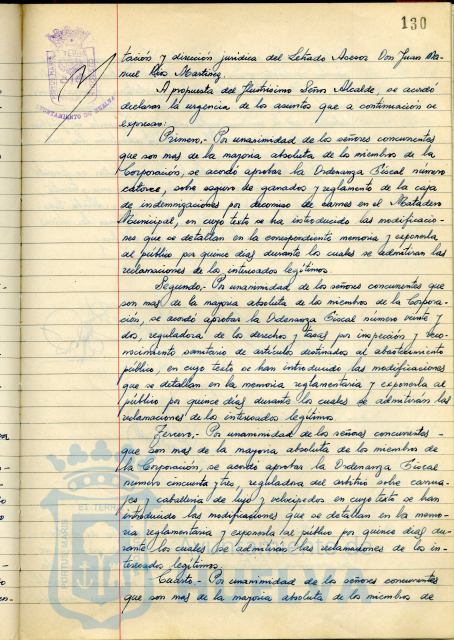 130
tación y dirección jurídica del Letrado Asesor Don Juan Ma-
nuel Ríos Martínez.
A propuesta del Iltmo Señor Alcalde, se acordó
declarar la urgencia de los asuntos que a continuación se
expresan:
Primero.- Por unanimidad de los señores concurrentes
que son mas de la mayoria absoluta de los miembros de la
Corporación, se acordó aprobar la Ordenanza Fiscal número
catorce, sobre seguro de ganados y reglamento de la caja
de indemnizaciones por decomiso de carnes en el Matadero
Municipal, en cuyo texto se ha introducido las modificacio-
nes que se detallan en la correspondiente memoria y exponerla
al público por quince dias durante los cuales se admitiran las
reclamaciones de los interesados legítimos.
Segundo.- Por unanimidad de los señores concurrentes que
son mas de la mayoria absoluta de los miembros de la Corpora-
ción, se acordó aprobar la Ordenanza Fiscal número veinte y
dos, reguladora de los derechos y tasas por inspección y reco-
nocimiento sanitario de artículos destinados al abastecimiento
público, en cuyo texto se han introducido las modificaciones
que se detallan en la memoria reglamentaria y exponerla al
público por quince dias durante los cuales se admitirán las
reclamaciones de los interesados legítimos
Tercero.- Por unanimidad de los señores concurrentes -
que son mas de la mayoria absoluta de los miembros de
la Corporación, se acordó aprobar la Ordenanza Fiscal
número cincuenta y tres, reguladora del arbitrio sobre carrua-
jes y caballerias de lujo y velocipedos en cuyo texto se han
introducido las modificaciones que se detallan en la memo-
ria reglamentaria y exponerla al público por quince dias du-
rante los cuales se admitirán las reclamaciones de los in-
teresados legítimos.
Cuarto.- Por unanimidad de los señores concurrentes
que son mas de la mayoria absoluta de los miembros de